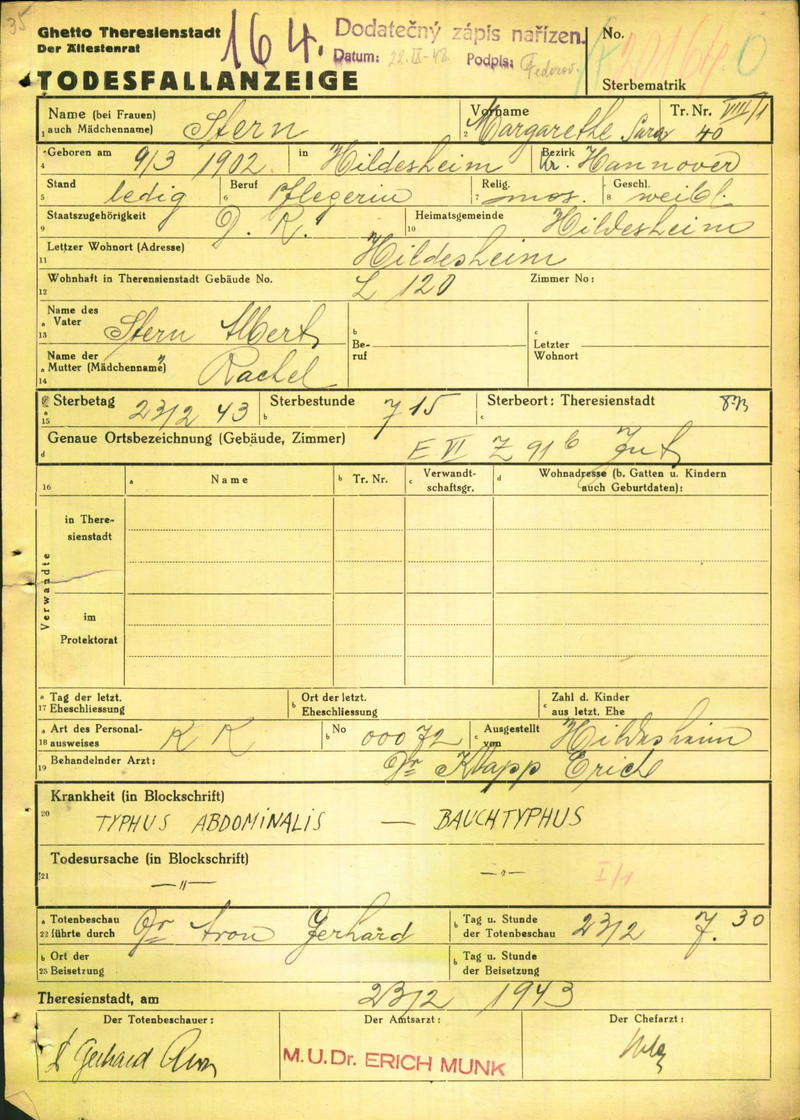 35
Ghetto Theresienstadt
Der Ältestenrat
164.
Dodatečný zápis nařízen.
Datum: 22.IX-48. Podpis:
No.
Sterbematrik
TODESFALLANZEIGE
Name (bei Frauen) auch Mädchenname) 1 Stern
Vorname 2 Margarethe Sara
Tr. Nr. VIII/1 40
4 Geboren am 9/3 1902 in Hildesheim Bezirk Hannover
Stand 5 ledig Beruf 6 Pflegerin Relig. 7 mos. Geschl. 8 weibl.
Staatszugehörigkeit 9 D. R. Heimatsgemeinde 10 Hildesheim
Lettzer Wohnort (Adresse) 11 Hildesheim
Wohnhaft in Theresienstadt Gebäude No. 12 L 120 Zimmer No:
Name des a Vater 13 Stern Albert
b Be-ruf
c Letzter Wohnort
Name der a Mutter (Mädchenname) 14 Rachel
a 15 Sterbetag 23/2 43 Sterbestunde b 7 15 Sterbeort: Theresienstadt c
Genaue Ortsbezeichnung (Gebäude, Zimmer) d E VI Z 91b
16 a Name b Tr. Nr. c Verwandt-schaftsgr. d Wohnadresse (b. Gatten u. Kindern auch Geburtdaten):
Verwandte
in There-sienstadt
im Protektorat
a Tag der letzt. 17 Eheschliessung
b Ort der letzt. Eheschliessung
c Zahl d. Kinder aus letzt. Ehe
a Art des Personal- 18 ausweises K K b No 00072 c Ausgestellt von Hildesheim
Behandelnder Arzt: 19 Dr Klapp Erich
Krankheit (in Blockschrift)
20 TYPHUS ABDOMINALIS — BAUCHTYPHUS
Todesursache (in Blockschrift)
21 —"— —"— I/1
a Totenbeschau 22 führte durch Dr Aron Gerhard b Tag u. Stunde der Totenbeschau 23/2 7.30
b Ort der 23 Beisetzung
b Tag u. Stunde der Beisetzung
Theresienstadt, am 23/2 1943
Der Totenbeschauer: Der Amtsarzt: Der Chefarzt:
Gerhard Aron
M.U.Dr. ERICH MUNK